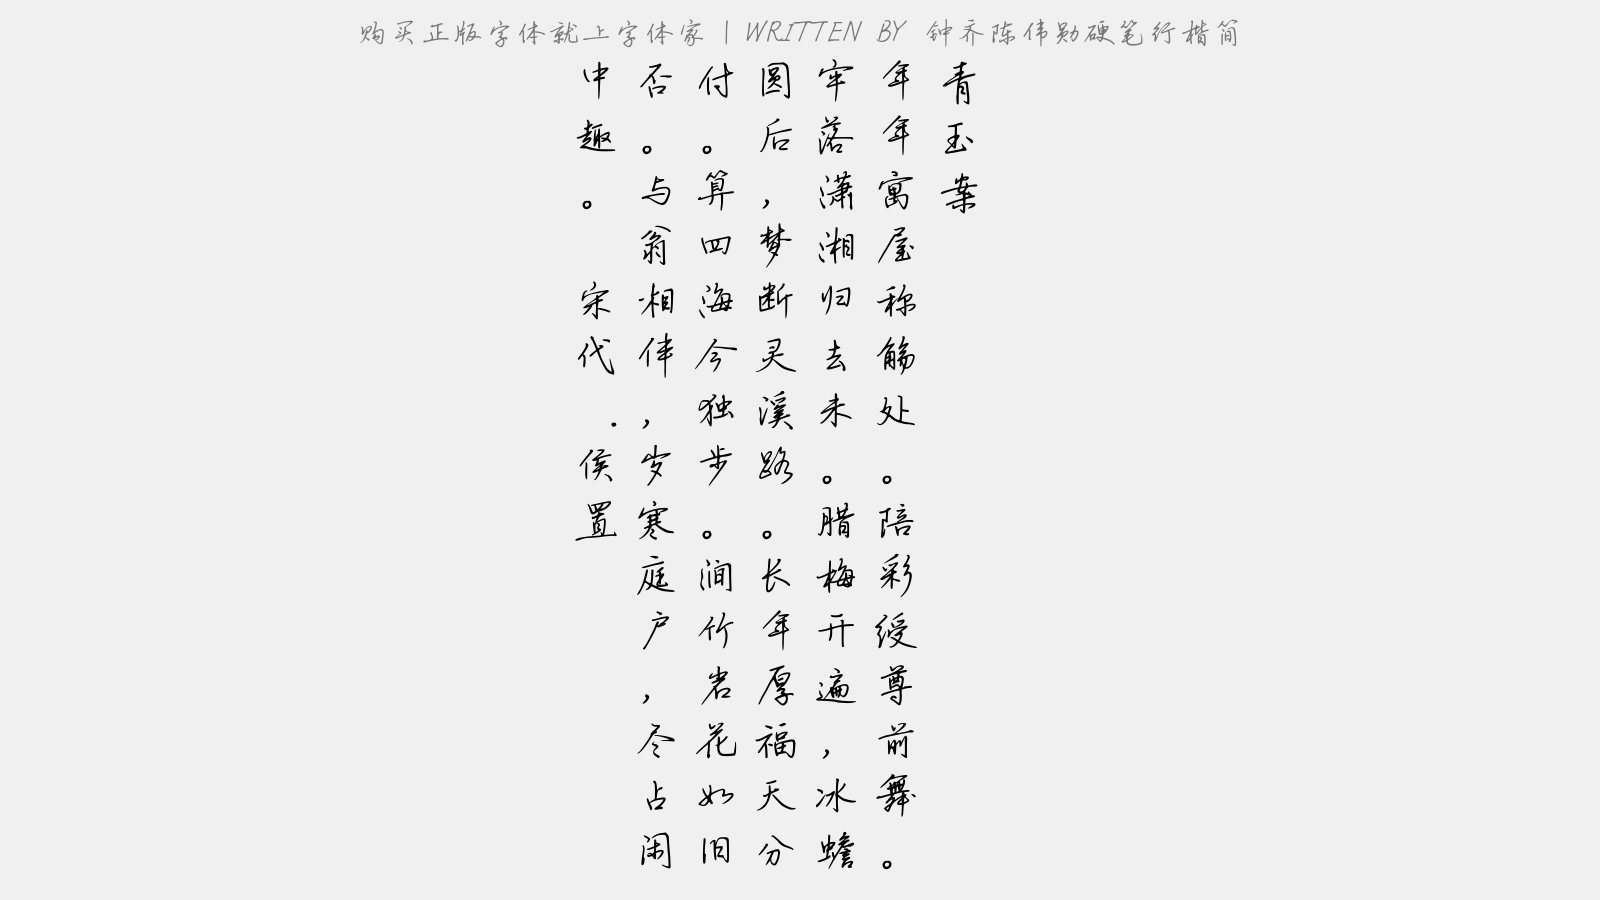 购买正版字体就上字体家 | WRITTEN BY 钟齐陈伟勋硬笔行楷简
青玉案
年年寓屋称觞处。陪彩绶尊前舞。
牢落潇湘归去未。腊梅开遍，冰蟾
圆后，梦断灵溪路。长年厚福天分
付。算四海今独步。涧竹岩花如旧
否。与翁相伴，岁寒庭户，尽占闲
中趣。 宋代.侯置